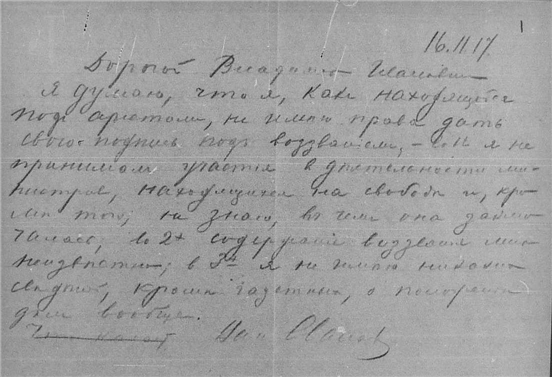 1
16.11.17.
Дорогой Владимир Иванович
Я думаю, что я, какъ находящійся
подъ арестомъ, не имѣю права дать
свою подпись подъ воззваніемъ, – во 1х я не
принималъ участія въ дѣятельности ми-
нистровъ, находящихся на свободѣ и, кро-
мѣ того, не знаю, въ чемъ она
во 2х содержаніе воззванія мнѣ
неизвѣстно; въ 3х я не имѣю никакихъ
свѣдѣній, кромѣ газетныхъ, о положеніи
дѣлъ вообще.